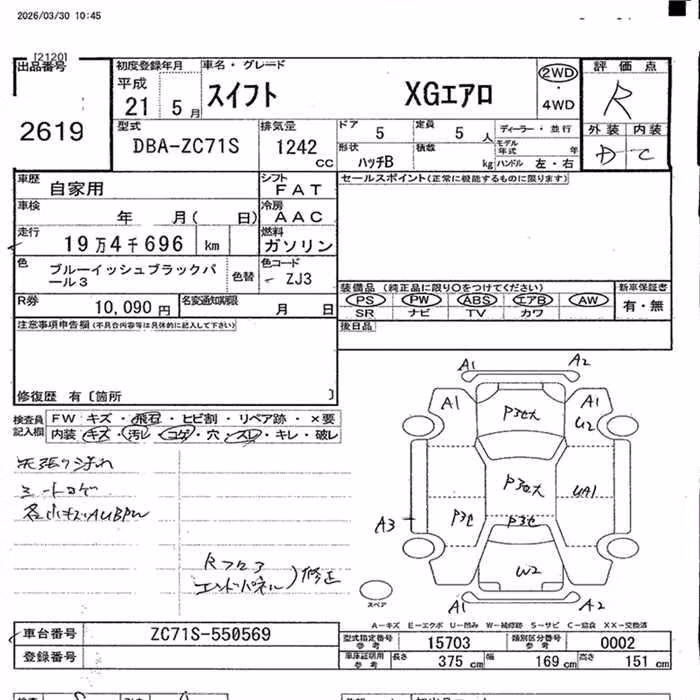 2026/03/30 10:45
[2120]
出品番号
2619
初度登録年月
平成
21 5月
車名・グレード
スイフト XGエアロ
2WD
・
4WD
評価点
R
外装 内装
D C
型式
DBA-ZC71S
排気量
1242 cc
ドア 5
定員 5 人
ディーラー・並行
モデル年式 年
形状 ハッチB
積載 kg
ハンドル 左・右
車歴 自家用
シフト FAT
セールスポイント(正常に機能するものに限ります)
車検 年 月( 日)
冷房 AAC
走行 19万4千696 km
燃料 ガソリン
色 ブルーイッシュブラックパール3
色替
色コード - ZJ3
装備品 (純正品に限り○をつけてください)
新車保証書
PS PW ABS エアB AW
有・無
SR ナビ TV カワ
R券 10,090円
名変通知期限 月 日
後日品
注意事項申告欄(不具合内容等は具体的に記入して下さい)
修復歴 有〔箇所 〕
検査員記入欄
FW キズ・飛石・ヒビ割・リペア跡・×要
内装 キズ・汚レ・コゲ・穴・スレ・キレ・破レ
天張り汚れ
シートコゲ
各小キズAUBPW
Rフロア
エンドパネル)修正
A1 A2
A1 P3セ大 A1
U2
P3セ大 UA1
A3 P3セ P3セ
W2
A1 A2
スペア
A-キズ E-エクボ U-凹み W-補修跡 S-サビ C-腐食 XX-交換済
車台番号 ZC71S-550569
登録番号
型式指定番号 参考 15703
類別区分番号 参考 0002
車庫証明用 参考 長さ 375 cm 幅 169 cm 高さ 151 cm